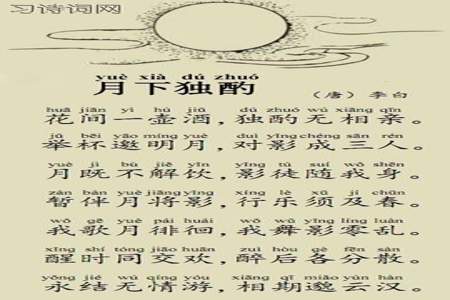 习诗词网
yuè xià dú zhuó
月下独酌
（唐）李白
huā jiān yì hú jiǔ dú zhuó wú xiāng qīn
花间一壶酒，独酌无相亲。
jǔ bēi yāo míng yuè duì yǐng chéng sān rén
举杯邀明月，对影成三人。
yuè jì bù jiě yǐn yǐng tú suí wǒ shēn
月既不解饮，影徒随我身。
zàn bàn yuè jiāng yǐng xíng lè xū jí chūn
暂伴月将影，行乐须及春。
wǒ gē yuè pái huái wǒ wǔ yǐng líng luàn
我歌月徘徊，我舞影零乱。
xǐng shí tóng jiāo huān zuì hòu gè fēn sàn
醒时同交欢，醉后各分散。
yǒng jié wú qíng yóu xiāng qī miǎo yún hàn
永结无情游，相期邈云汉。